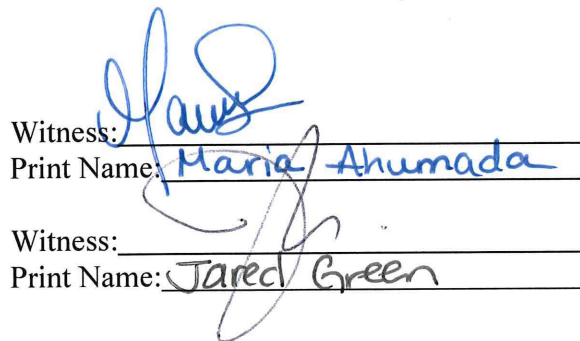 Witness:
Print Name: Maria Ahumada
Witness:
Print Name: Jared Green